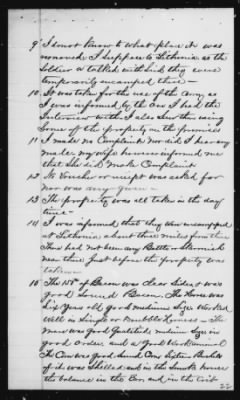 9 I do not know to what place it was
removed I suppose to Lithonia as the
Soldier I talked with said they were
temporarily encamped there —
10 It was taken for the use of the Army, as
I was informed by the One I had the
Interview with I also saw them using
Some of the property on the premises
11 I made no Complaint nor did I hear any
made, my wife however informed me
that She did make Complaint
12 No Voucher or receipt was asked for
nor was any given —
13 The property was all taken in the day
time —
14 I was informed that they were encamped
at Lithonia about three miles from there
There had not been any Battle or Skirmish
near there Just before the property was
taken —
15 The 15th of Bacon was Clear Sides & was
good Sound Bacon. The Horse was
Six Years old good medium Size Worked
Well in Single or Double Harness — The
Mare was good Qualities, medium Size in
good order, and a good Work animal
The Cow was good Sound One Sixteen Bushels
of it was Shelled and in the Smoke house
the balance in the Ear and in the Crib
22